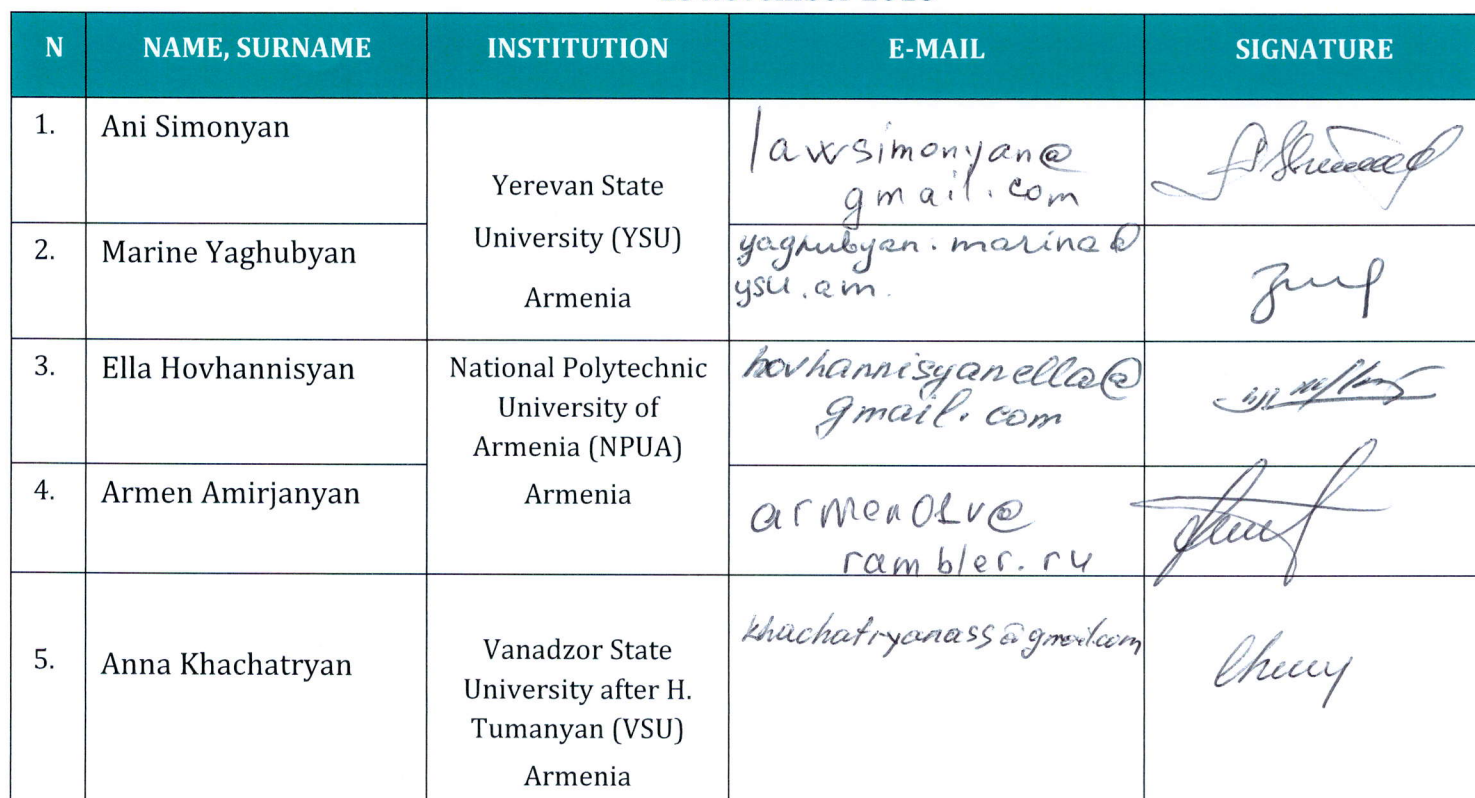 N NAME, SURNAME INSTITUTION E-MAIL SIGNATURE
1. Ani Simonyan
Yerevan State
University (YSU)
Armenia
lawsimonyan@
gmail.com
2. Marine Yaghubyan
yaghubyan.marine@
ysu.am.
3. Ella Hovhannisyan
National Polytechnic
University of
Armenia (NPUA)
Armenia
hovhannisyanella@
gmail.com
4. Armen Amirjanyan
armen01v@
rambler.ru
5. Anna Khachatryan
Vanadzor State
University after H.
Tumanyan (VSU)
Armenia
khachatryanass@gmail.com